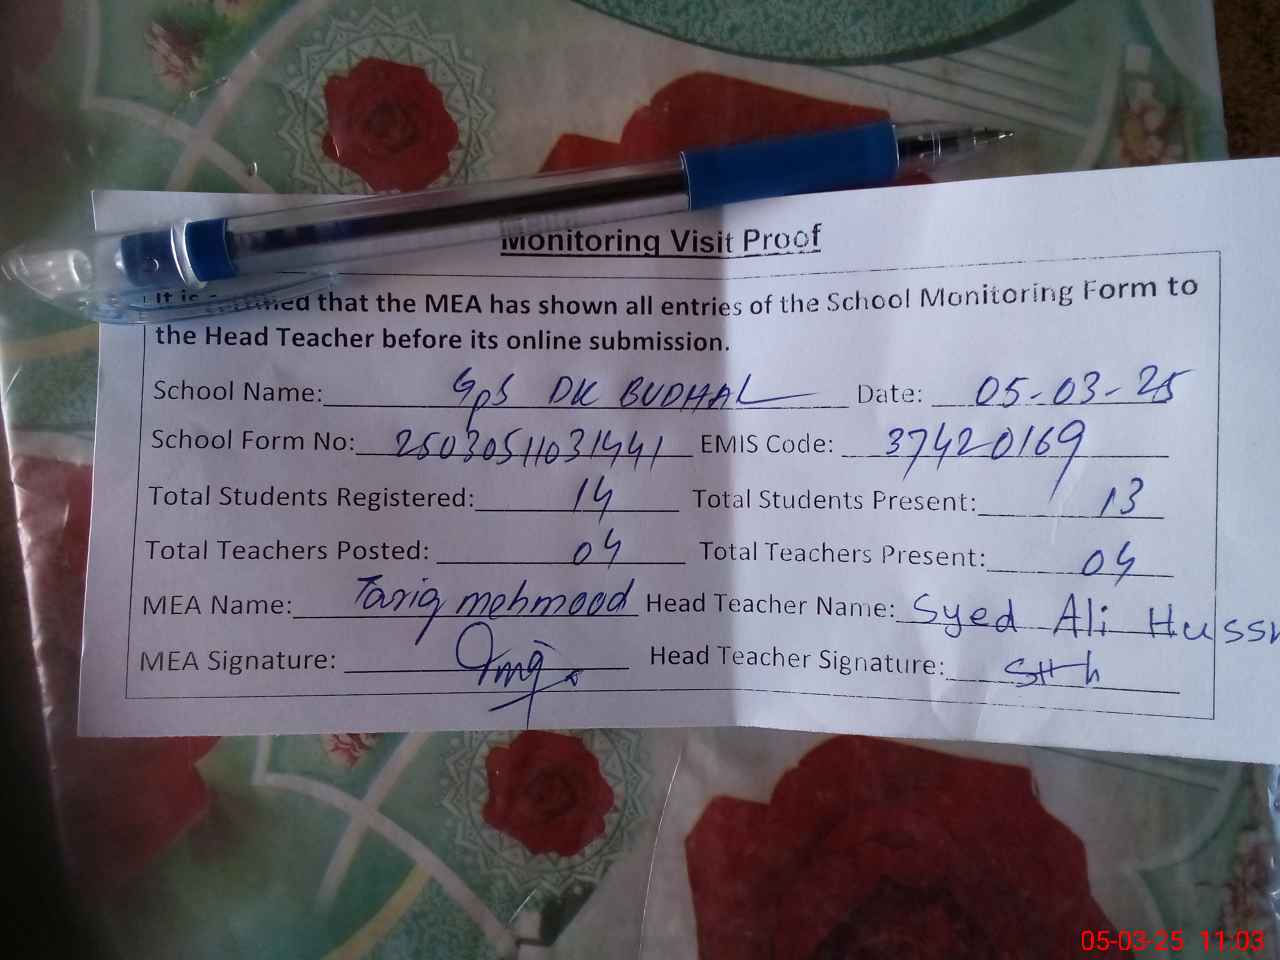 Monitoring Visit Proof
It is certified that the MEA has shown all entries of the School Monitoring Form to
the Head Teacher before its online submission.
School Name: GPS DK BUDHAL Date: 05-03-25
School Form No: 25030511031441 EMIS Code: 37420169
Total Students Registered: 14 Total Students Present: 13
Total Teachers Posted: 04 Total Teachers Present: 04
MEA Name: Tariq mehmood Head Teacher Name: Syed Ali Hussn
MEA Signature: Head Teacher Signature:
05-03-25 11:03